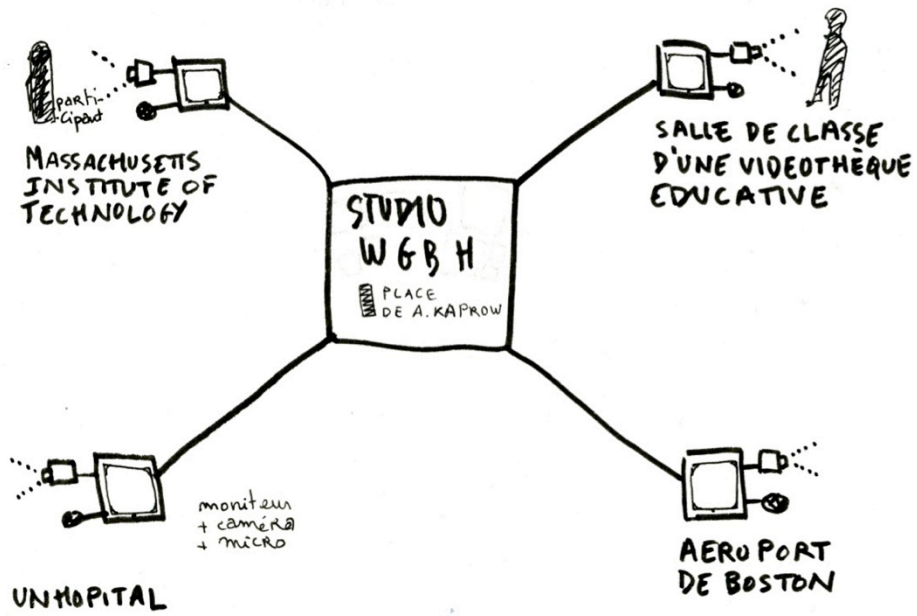 parti-
cipant
MASSACHUSETTS
INSTITUTE OF
TECHNOLOGY
SALLE DE CLASSE
D'UNE VIDEOTHÈQUE
EDUCATIVE
STUDIO
WGBH
PLACE
DE A. KAPROW
moniteur
+ caméra
+ micro
UN HOPITAL
AEROPORT
DE BOSTON